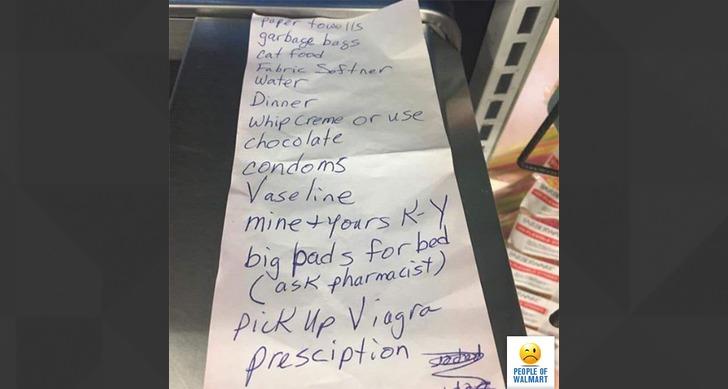 paper towolls
garbage bags
cat food
Fabric Softner
Water
Dinner
Whip Creme or use
chocolate
condoms
Vaseline
mine + yours K-Y
big pads for bed
(ask pharmacist)
Pick Up Viagra
presciption
PEOPLE OF
WALMART